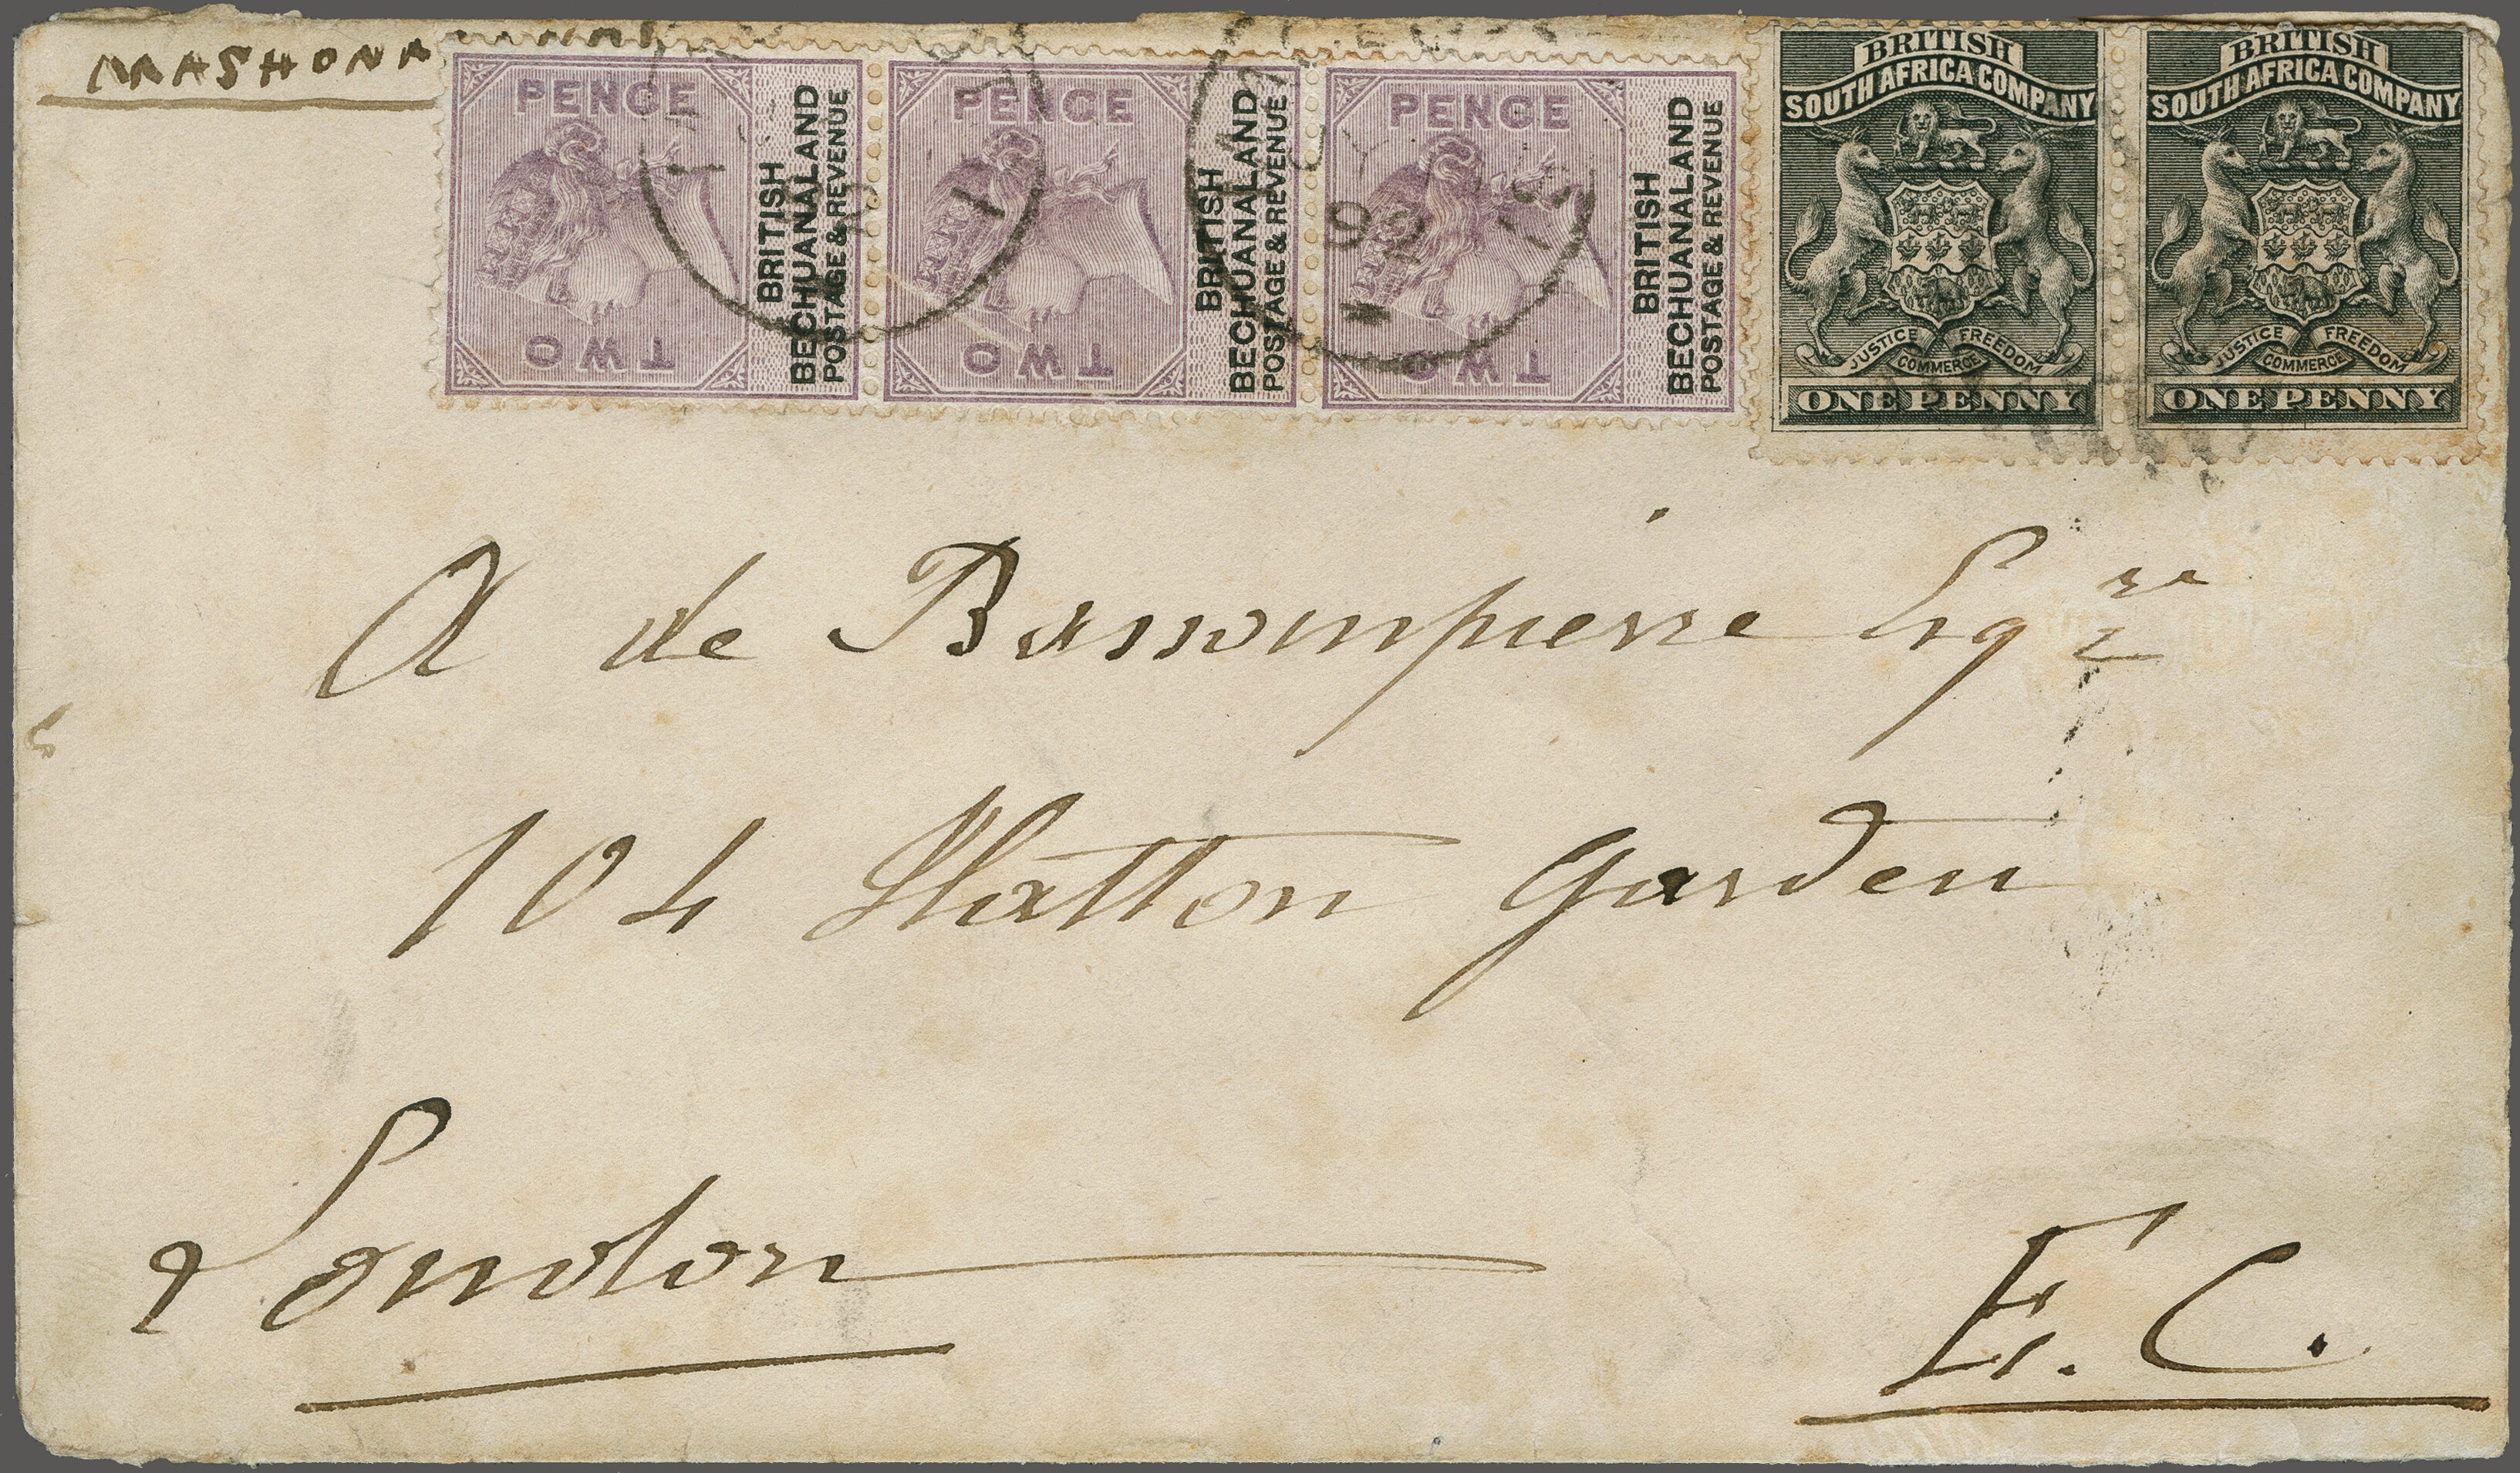 MASHONA
PENCE
TWO
BRITISH
BECHUANALAND
POSTAGE & REVENUE
PENCE
TWO
BRITISH
BECHUANALAND
POSTAGE & REVENUE
PENCE
TWO
BRITISH
BECHUANALAND
POSTAGE & REVENUE
BRITISH
SOUTH AFRICA COMPANY
JUSTICE COMMERCE FREEDOM
ONE PENNY
BRITISH
SOUTH AFRICA COMPANY
JUSTICE COMMERCE FREEDOM
ONE PENNY
92
A de Bassompierre Esqre
104 Hatton Garden
London
E.C.